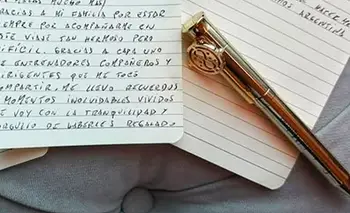 MUCHO MAS)
GRACIAS A MI FAMILIA POR ESTAR
SIEMPRE POR ACOMPAÑARME EN
ESTE VIAJE TAN HERMOSO PERO
DIFÍCIL. GRACIAS A CADA UNO
DE ENTRENADORES COMPAÑEROS Y
DIRIGENTES QUE ME TOCÓ
COMPARTIR. ME LLEVO RECUERDOS
Y MOMENTOS INOLVIDABLES VIVIDOS
ME VOY CON LA TRANQUILIDAD Y
ORGULLO DE HABERLES REGALADO
HACE
ARGENTINA